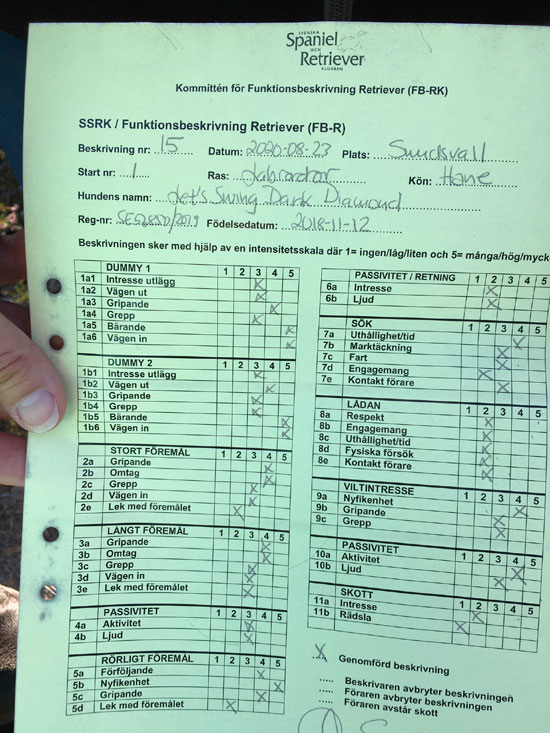 SVENSKA
Spaniel
OCH
Retriever
KLUBBEN
Kommittén för Funktionsbeskrivning Retriever (FB-RK)
SSRK / Funktionsbeskrivning Retriever (FB-R)
Beskrivning nr: 15 Datum: 2020-08-23 Plats: Sundsvall
Start nr: 1 Ras: Labrador Kön: Hane
Hundens namn: Let's Swing Dark Diamond
Reg-nr: Födelsedatum: 2018-11-12
Beskrivningen sker med hjälp av en intensitetsskala där 1= ingen/låg/liten och 5= många/hög/myck
DUMMY 1 1 2 3 4 5
1a1 Intresse utlägg X
1a2 Vägen ut X
1a3 Gripande X
1a4 Grepp X
1a5 Bärande X
1a6 Vägen in X
DUMMY 2 1 2 3 4 5
1b1 Intresse utlägg X
1b2 Vägen ut X
1b3 Gripande X
1b4 Grepp X
1b5 Bärande X
1b6 Vägen in X
STORT FÖREMÅL 1 2 3 4 5
2a Gripande X
2b Omtag X
2c Grepp X
2d Vägen in X
2e Lek med föremålet X
LÅNGT FÖREMÅL 1 2 3 4 5
3a Gripande X
3b Omtag X
3c Grepp X
3d Vägen in X
3e Lek med föremålet X
PASSIVITET 1 2 3 4 5
4a Aktivitet X
4b Ljud X
RÖRLIGT FÖREMÅL 1 2 3 4 5
5a Förföljande X
5b Nyfikenhet X
5c Gripande X
5d Lek med föremålet X
PASSIVITET / RETNING 1 2 3 4 5
6a Intresse X
6b Ljud X
SÖK 1 2 3 4 5
7a Uthållighet/tid X
7b Marktäckning X
7c Fart X
7d Engagemang X
7e Kontakt förare X
LÅDAN 1 2 3 4 5
8a Respekt X
8b Engagemang X
8c Uthållighet/tid X
8d Fysiska försök X
8e Kontakt förare X
VILTINTRESSE 1 2 3 4 5
9a Nyfikenhet X
9b Gripande X
9c Grepp X
PASSIVITET 1 2 3 4 5
10a Aktivitet X
10b Ljud X
SKOTT 1 2 3 4 5
11a Intresse X
11b Rädsla X
X Genomförd beskrivning
..... Beskrivaren avbryter beskrivningen
..... Föraren avbryter beskrivningen
..... Föraren avstår skott